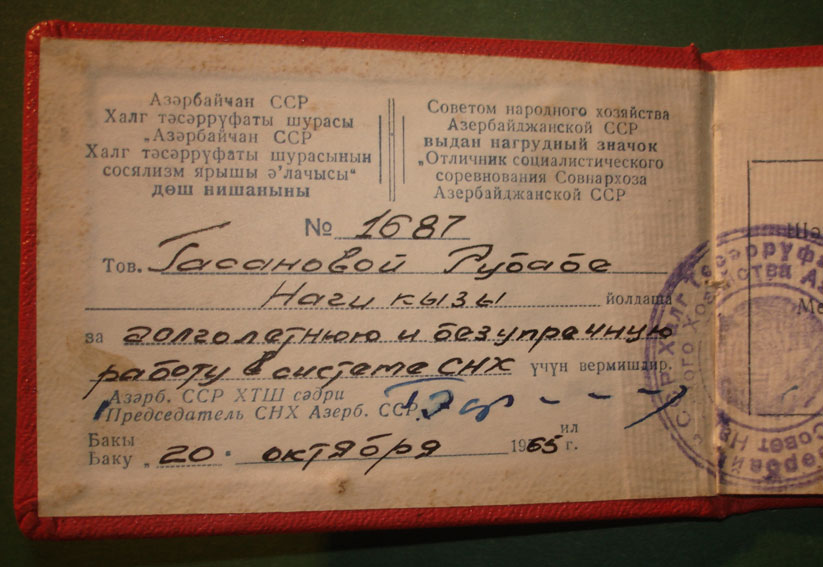 Азәрбајҹан ССР
Халг тәсәррүфаты шурасы
„Азәрбајҹан ССР
Халг тәсәррүфаты шурасынын
сосялизм јарышы ә'лачысы"
дөш нишаныны
Советом народного хозяйства
Азербайджанской ССР
выдан нагрудный значок
„Отличник социалистического
соревнования Совнархоза
Азербайджанской ССР
№ 1687
Тов. Гасановой Рубабе
Наги кызы йолдаша
за долголетнюю и безупречную
работу в системе СНХ үчүн вермишдир.
Азәрб. ССР ХТШ сәдри
Председатель СНХ Азерб. ССР
Бакы ил
Баку „20" октября 1965 г.